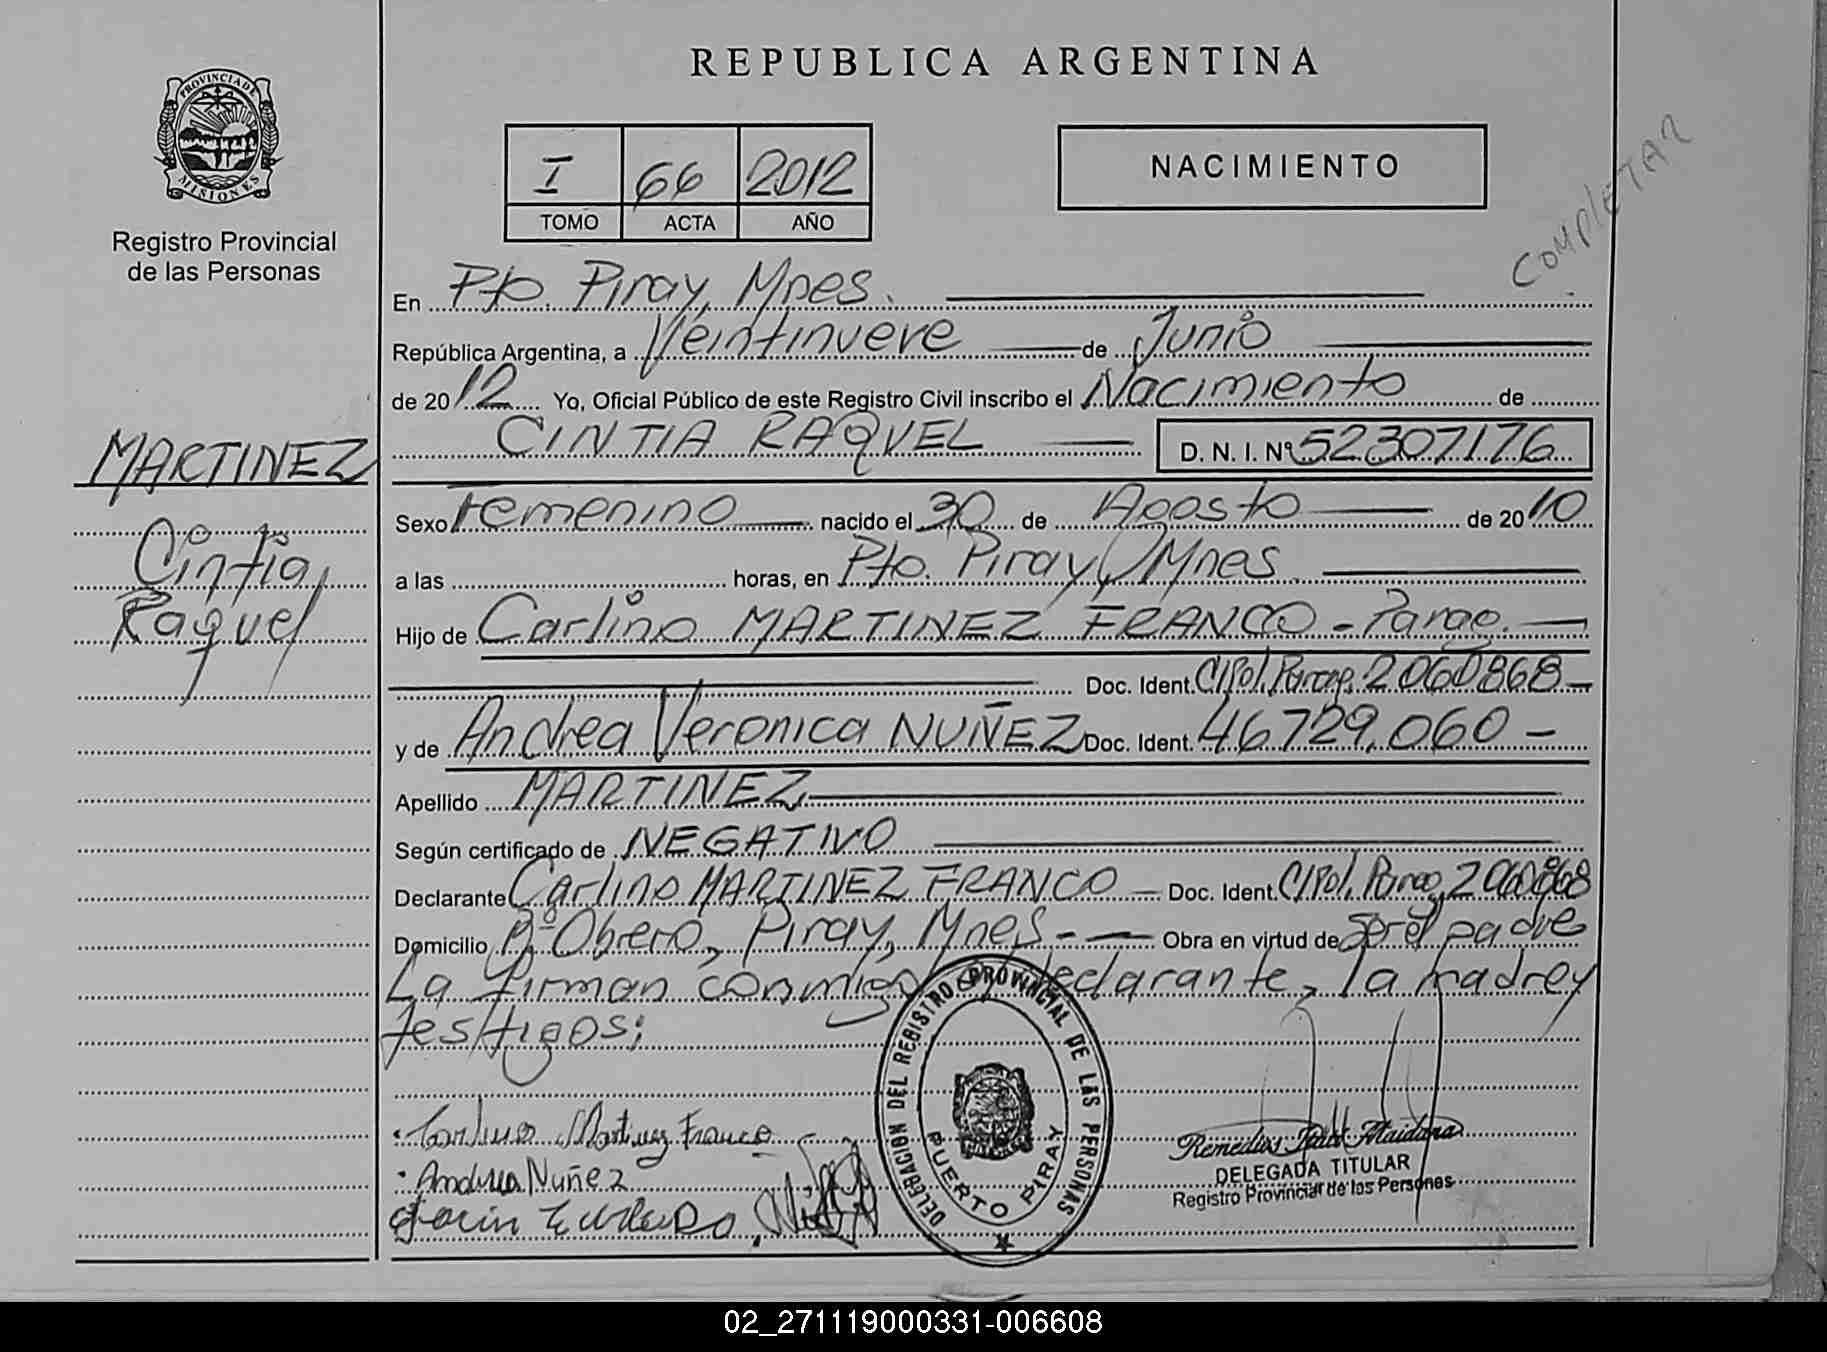 REPUBLICA ARGENTINA
PROVINCIA DE MISIONES
Registro Provincial
de las Personas
I 66 2012
TOMO ACTA AÑO
NACIMIENTO
COMPLETAR
En Pto. Piray, Mnes.
República Argentina, a Veintinueve de Junio
de 2012 Yo, Oficial Público de este Registro Civil inscribo el Nacimiento de
CINTIA RAQUEL D. N. I. Nº 52307176
MARTINEZ
Cintia,
Raquel
Sexo Femenino nacido el 30 de Agosto de 2010
a las horas, en Pto. Piray, Mnes.
Hijo de Carlino MARTINEZ FRANCO - Parag.
Doc. Ident. C/Pol. Parag. 2060868 -
y de Andrea Veronica NUÑEZ Doc. Ident. 46.729.060 -
Apellido MARTINEZ
Según certificado de NEGATIVO
Declarante Carlino MARTINEZ FRANCO - Doc. Ident. C/Pol. Parag. 2060868
Domicilio Bº Obrero, Piray, Mnes - Obra en virtud de ser el padre
La firman conmigo el declarante, la madre y
testigos;
Carlino Martinez Franco
Andrea Nuñez
DELEGACION DEL REGISTRO PROVINCIAL DE LAS PERSONAS
PUERTO PIRAY
Remedios Maidana
DELEGADA TITULAR
Registro Provincial de las Personas
02_271119000331-006608